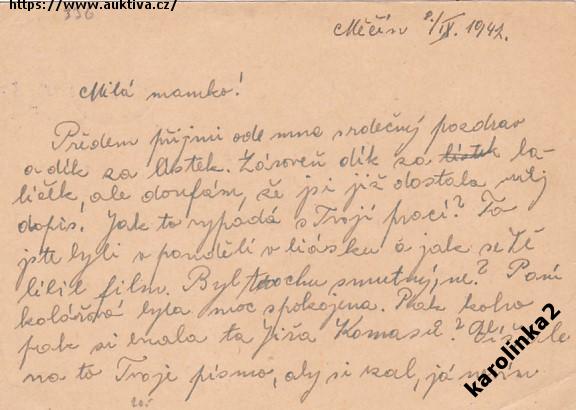 https://www.auktiva.cz/
336
Měčín 8./IX. 1942.
Milá mamko!
Předem přijmi ode mna srdečný pozdrav
a dík za lístek. Zároveň dík za lístek ba-
líčěk, ale doufám, že jsi již dostala můj
dopis. Jak to vypadá s Tvojí prací? To
jste byli v pondělí v biásku a jak se Tě
líbil film. Byl trochu smutný, ne? Paní
kolářová byla moc spokojena. Pak koho
pak si vzala ta Jiřa
na to Tvoje písmo, aby si vzal, já
karolinka2